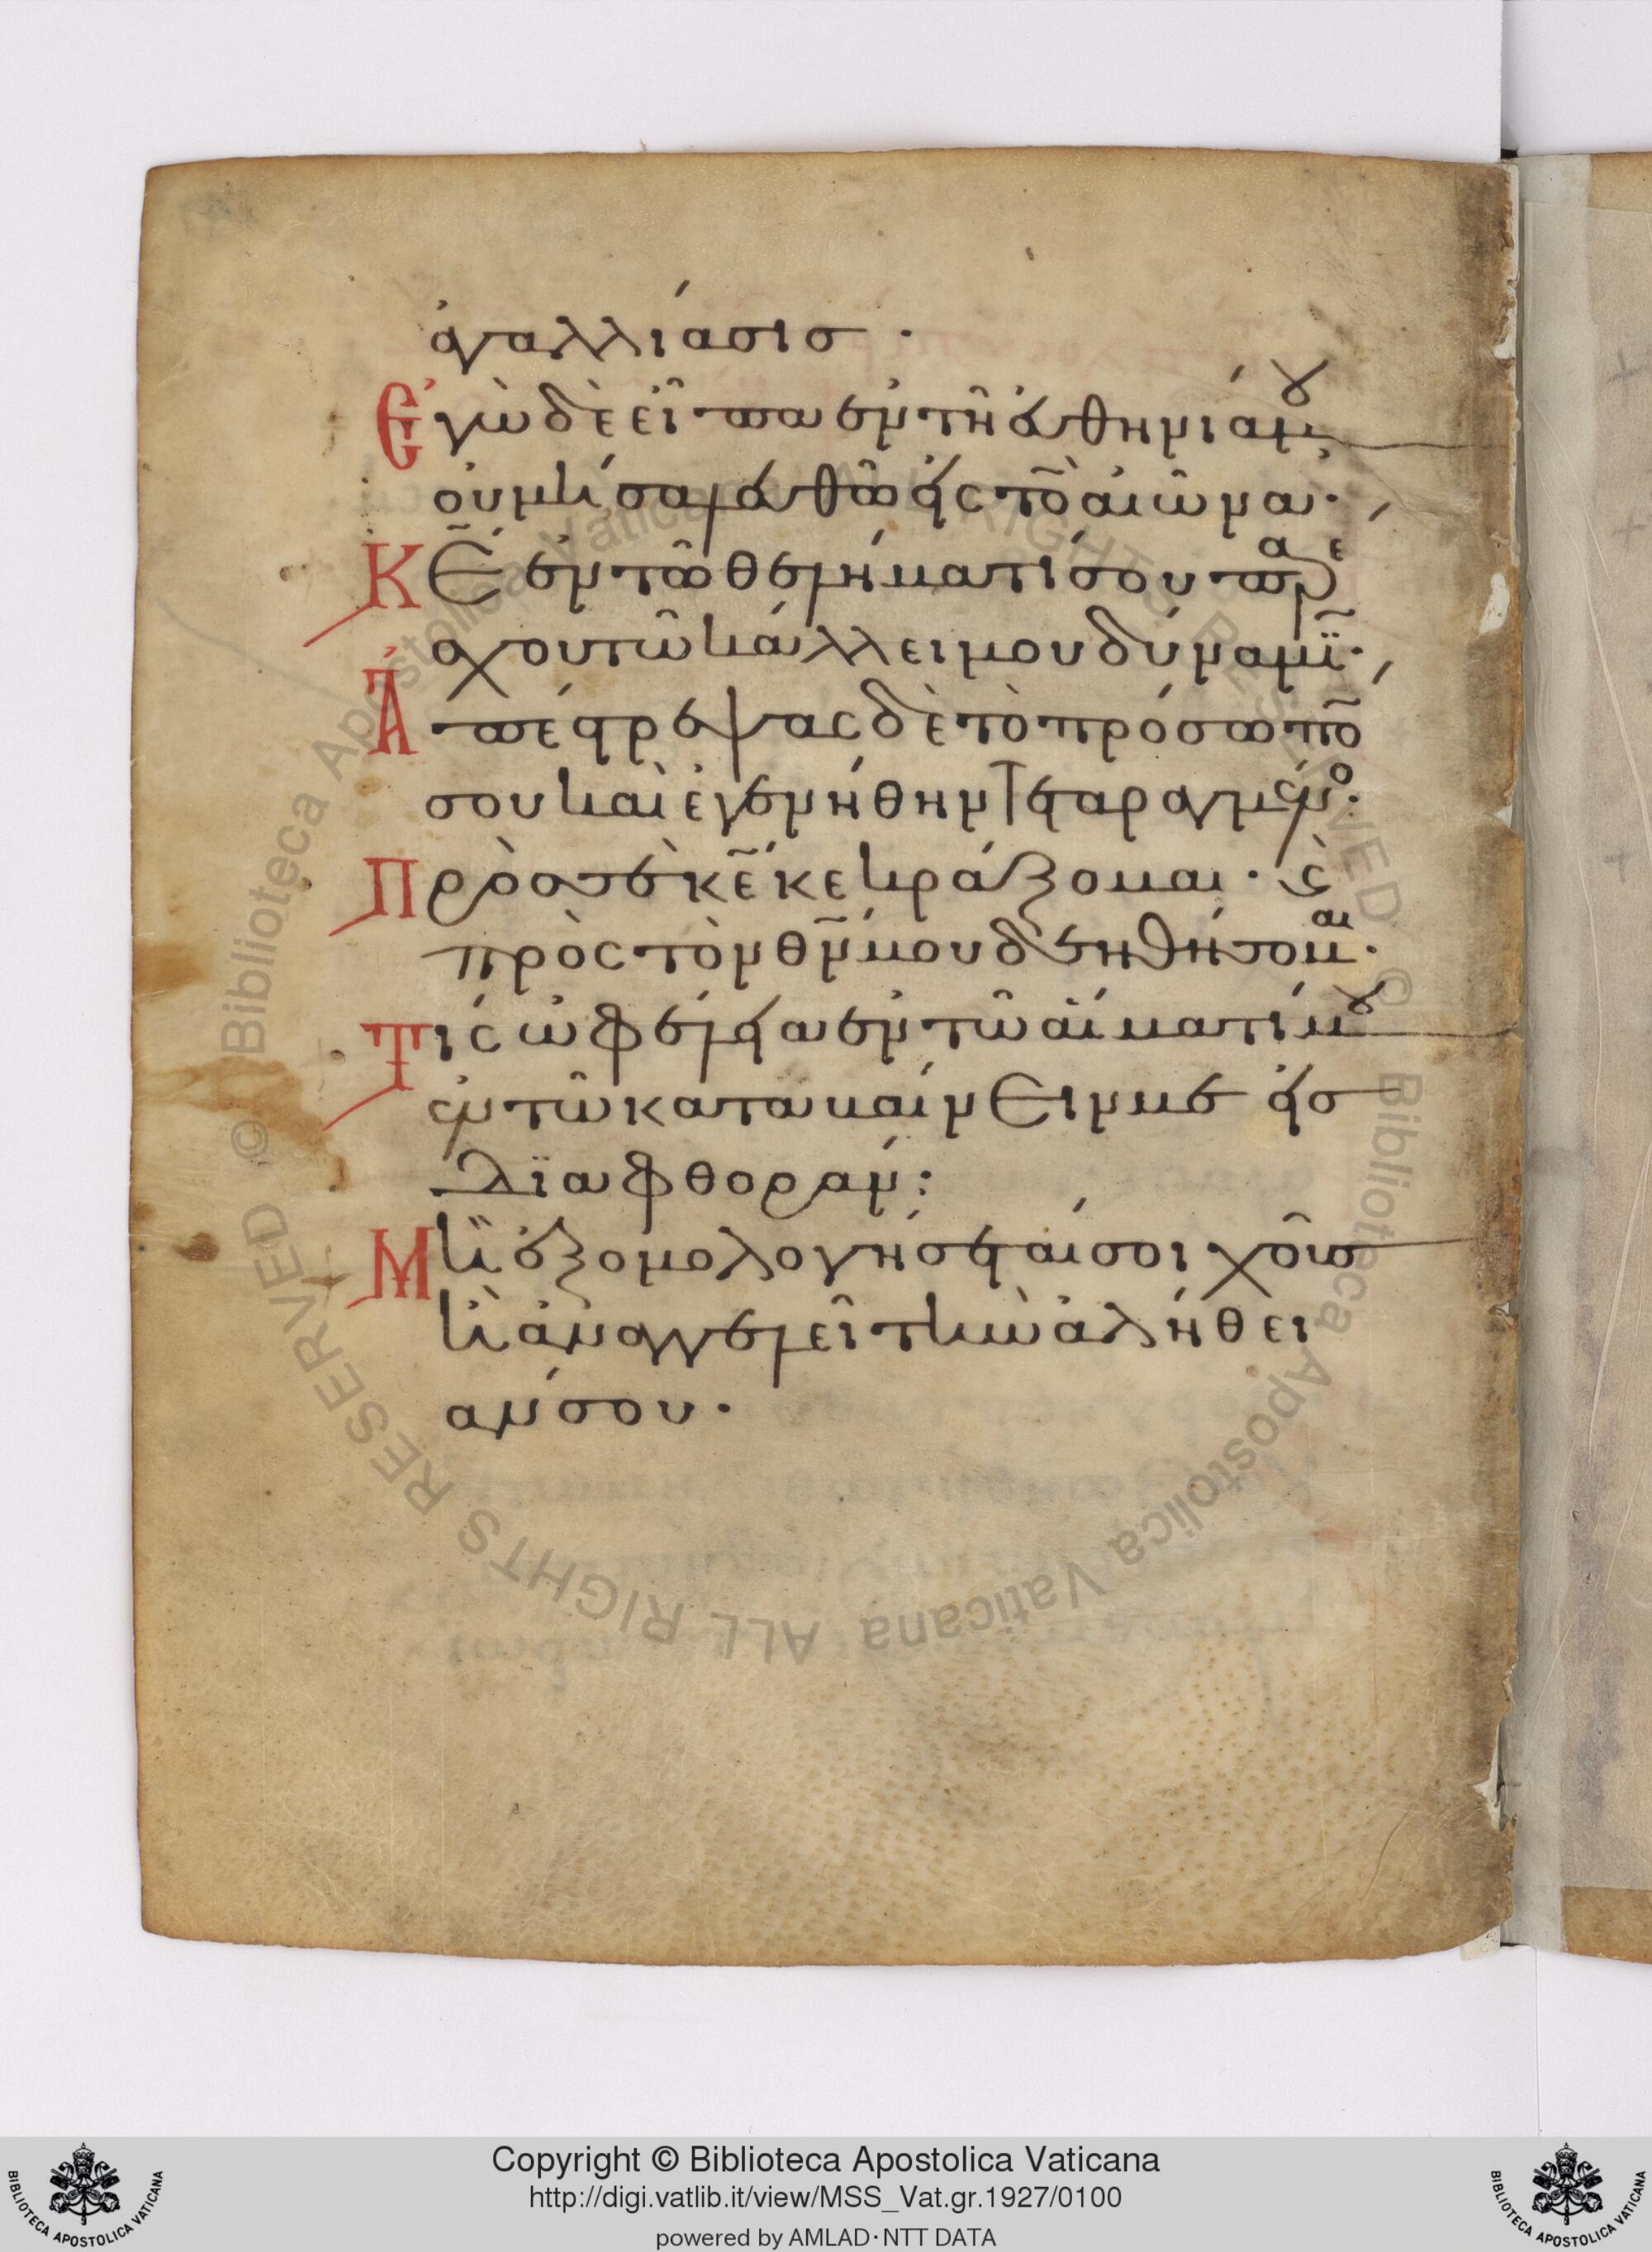 ἀγαλλίασισ ·
Ἐγὼ δὲ εἶπα ἐν τῆ εὐθηνία μου
οὐ μὴ σαλευθῶ εἰς τὸν αἰῶνα·
Κε ἐν τῶ θελήματί σου παρέ
σχου τῶ κάλλει μου δύναμϊν·
Ἀπέστρεψας δὲ τὸ πρόσωπον
σου καὶ ἐγενήθην τεταραγμένος·
Πρὸς σὲ κε κεκράξομαι · καὶ
πρὸς τὸν θν μου δεηθήσομαι·
Τίς ὠφέλεια ἐν τῶ αἵματί μου
ἐν τῶ καταβαίνειν με εἰσ
διαφθοράν:
Μὴ ἐξομολογήσεταί σοι χοῦσ
ἢ ἀναγγελεῖ τὴν ἀλήθει
αν σου·
Copyright © Biblioteca Apostolica Vaticana
http://digi.vatlib.it/view/MSS_Vat.gr.1927/0100
powered by AMLAD·NTT DATA
BIBLIOTECA APOSTOLICA VATICANA
BIBLIOTECA APOSTOLICA VATICANA
© Biblioteca Apostolica Vaticana ALL RIGHTS RESERVED © Biblioteca Apostolica Vaticana ALL RIGHTS RESERVED